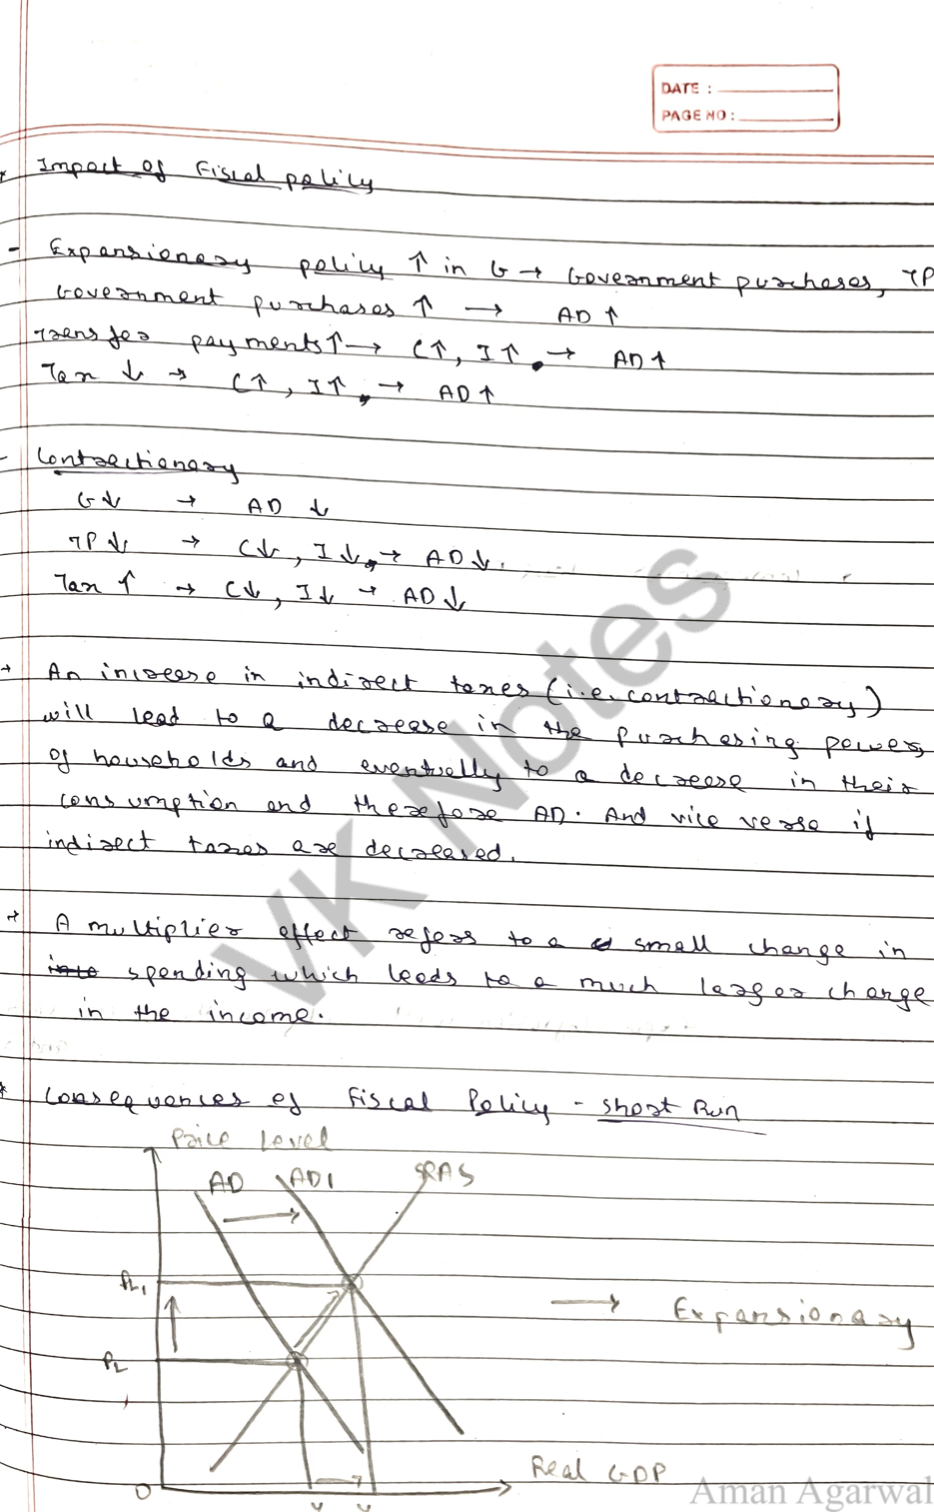 DATE :
PAGE NO :
* Impact of Fiscal policy
- Expansionary policy ↑ in G → Government purchases, TP
Government purchases ↑ → AD ↑
Transfer payments ↑ → C↑, I↑, → AD ↑
Tax ↓ → C↑, I↑, → AD ↑
- Contractionary
G↓ → AD ↓
TP↓ → C↓, I↓, → AD↓.
Tax ↑ → C↓, I↓ → AD↓
→ An increase in indirect taxes (i.e. contractionary)
will lead to a decrease in the purchasing power
of households and eventually to a decrease in their
consumption and therefore AD. And vice versa if
indirect taxes are decreased.
→ A multiplier effect refers to a small change in
spending which leads to a much larger change
in the income.
* Consequences of Fiscal Policy - Short Run
Price Level
AD AD1 SRAS
PL1
→ Expansionary
PL
0
Real GDP
Y Y
VK Notes
Aman Agarwal